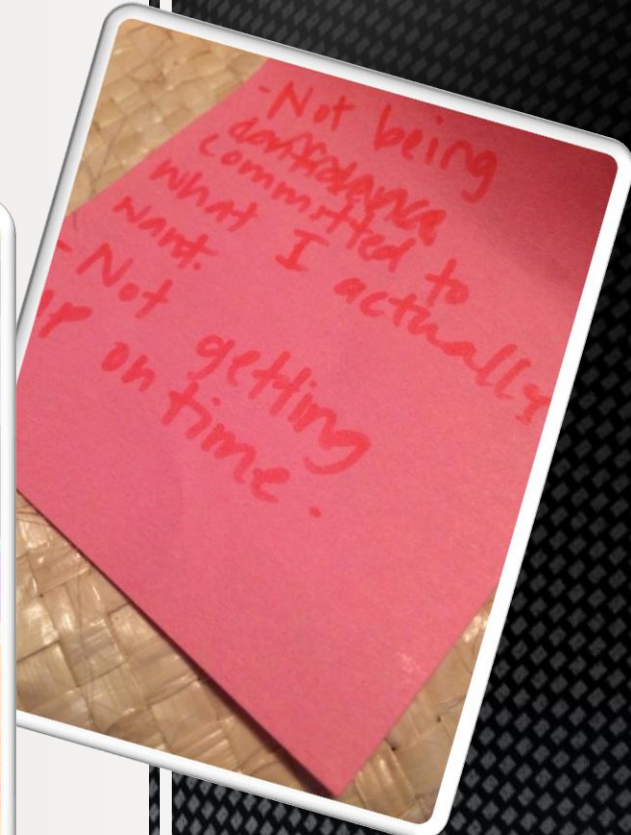 -Not being
committed to
what I actually
want.
- Not getting
up on time.